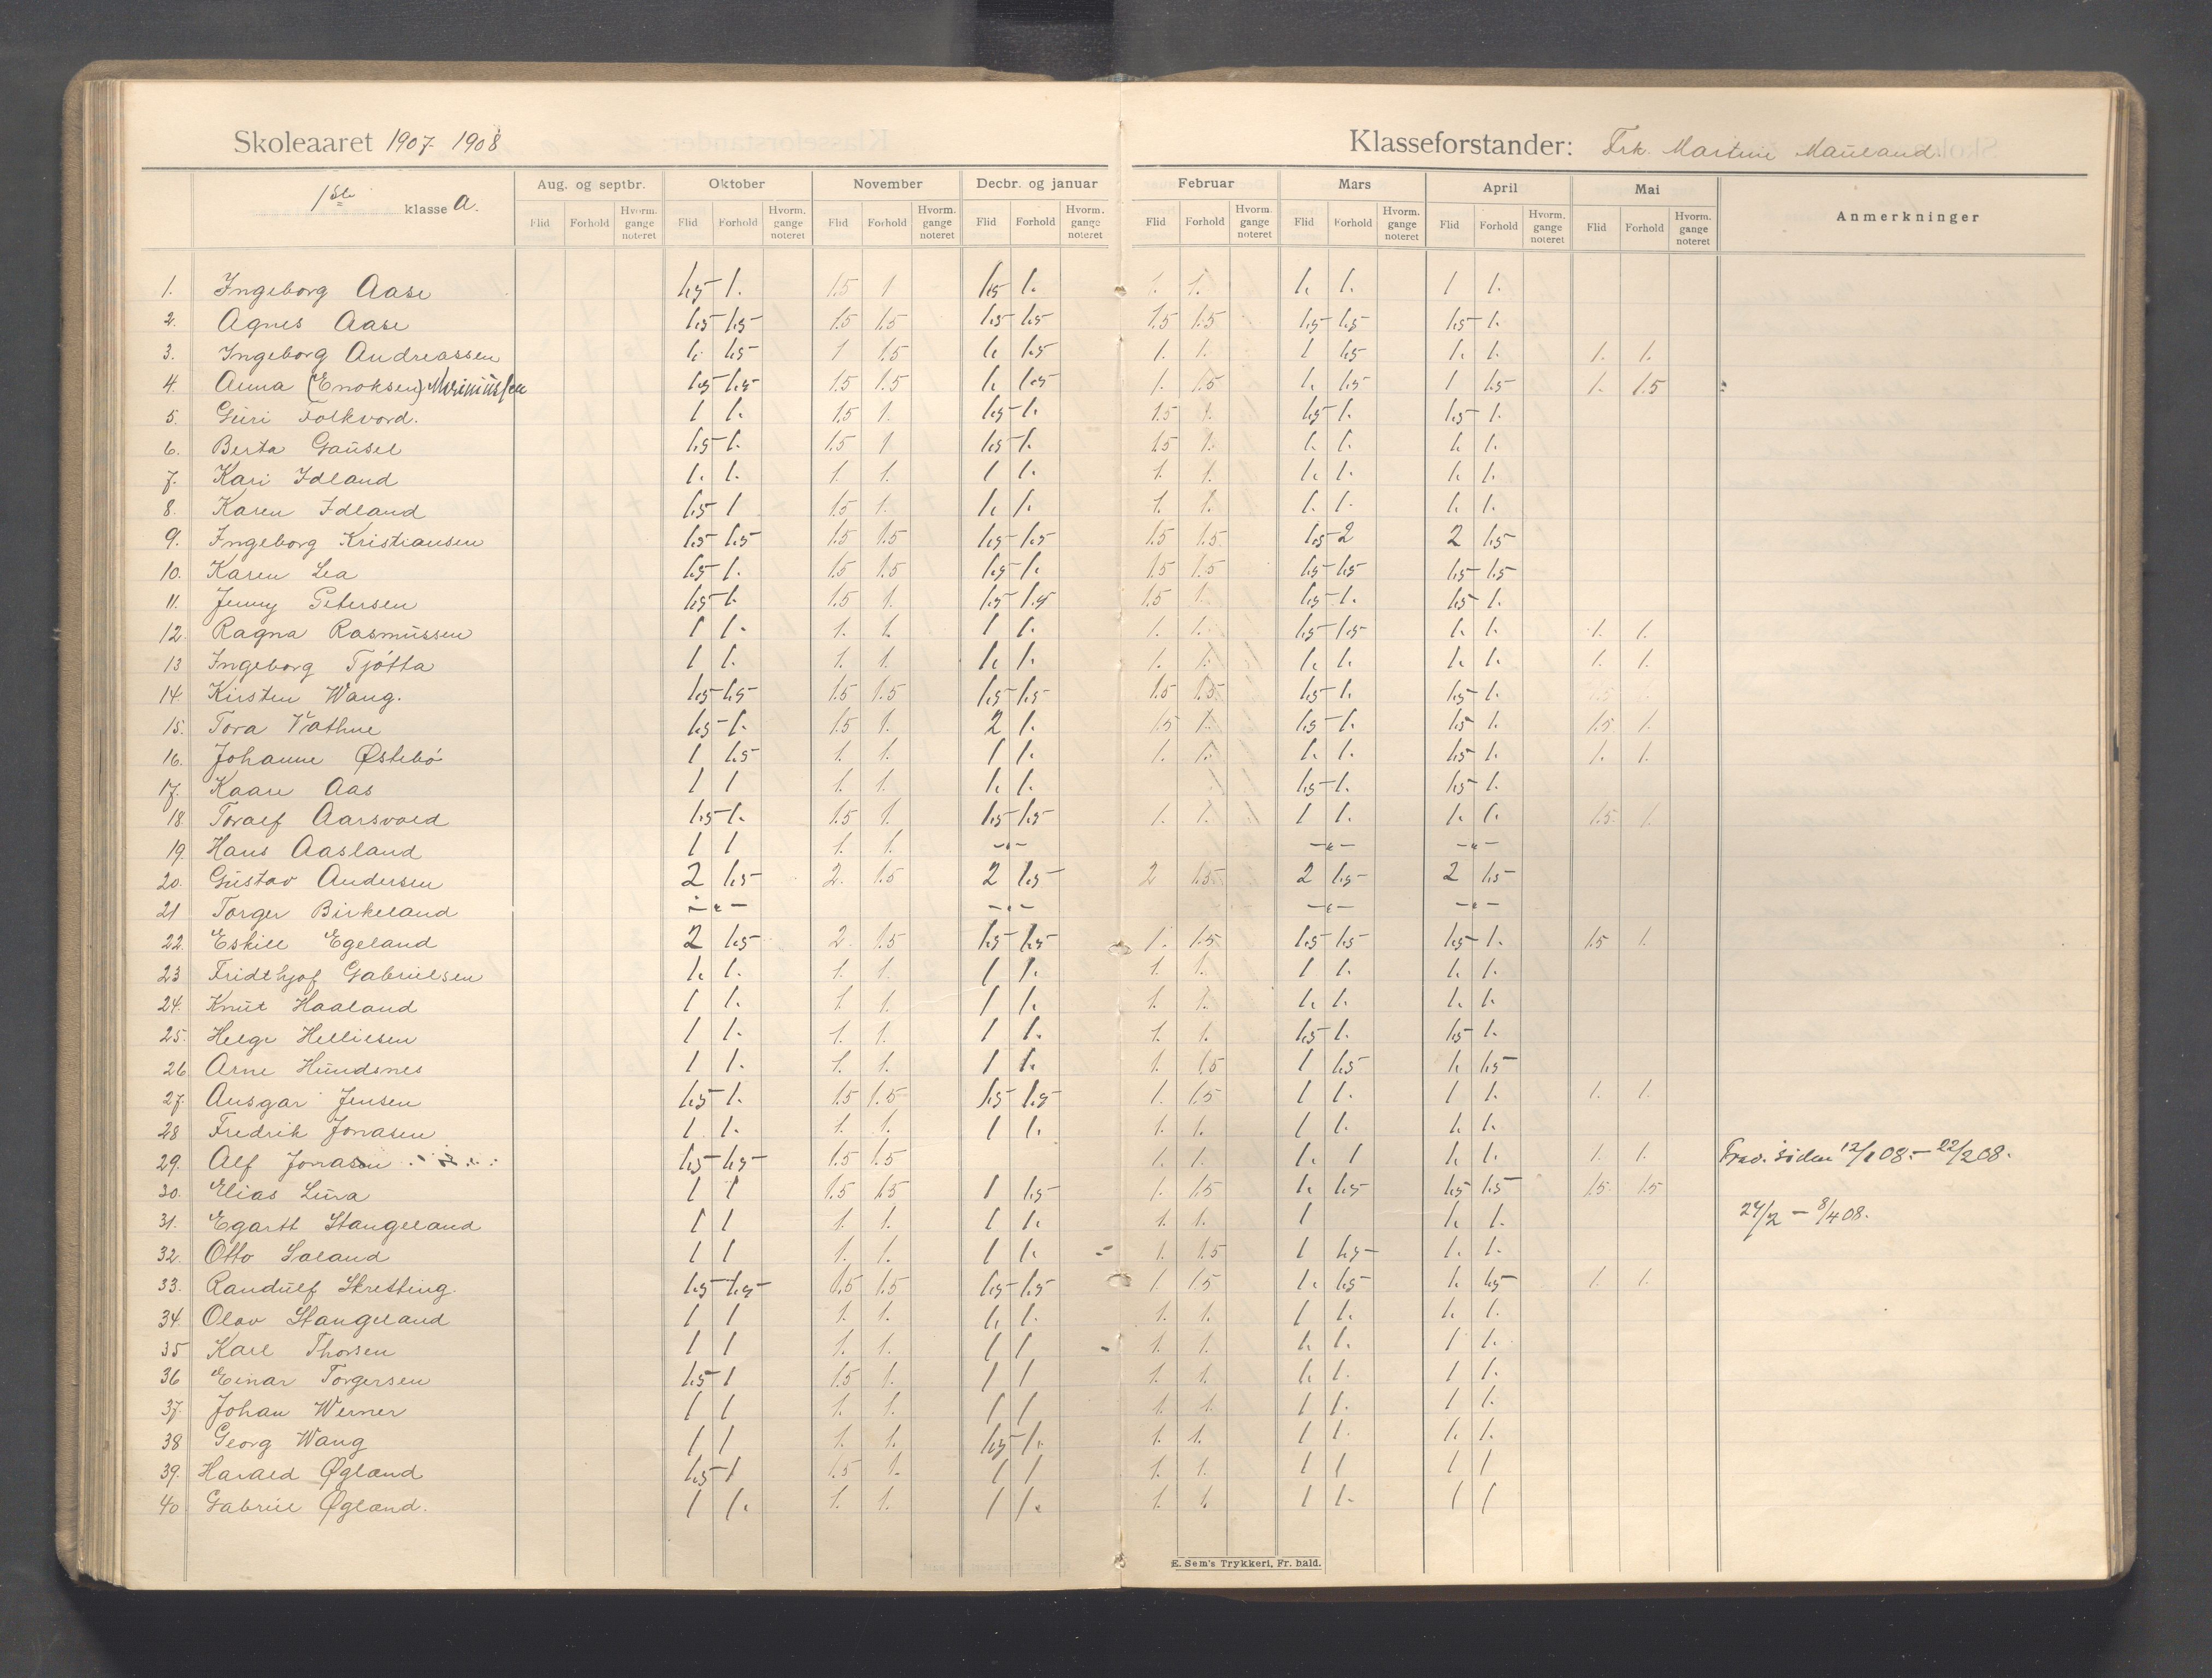 Skoleaaret 1907-1908 Klasseforstander: Frk. Martine Mauland
1ste klasse A. Aug. og septbr. Oktober November Decbr. og januar Februar Mars April Mai Anmerkninger
Flid Forhold Hvorm. gange noteret Flid Forhold Hvorm. gange noteret Flid Forhold Hvorm. gange noteret Flid Forhold Hvorm. gange noteret Flid Forhold Hvorm. gange noteret Flid Forhold Hvorm. gange noteret Flid Forhold Hvorm. gange noteret Flid Forhold Hvorm. gange noteret
1. Ingeborg Aase 1,5 1. 1.5 1 1,5 1. 1. 1. 1. 1. 1 1.
2. Agnes Aase 1,5 1,5 1.5 1.5 1,5 1,5 1.5 1.5 1,5 1,5 1,5 1.
3. Ingeborg Andreassen 1. 1,5 1 1.5 1. 1,5 1. 1. 1 1,5 1. 1. 1. 1.
4. Anna (Enoksen) Mariniussen 1,5 1,5 1.5 1.5 1. 1,5 1. 1.5 1. 1,5 1 1,5 1. 1.5
5. Guri Folkvord. 1 1. 1.5 1. 1,5 1. 1.5 1. 1,5 1. 1,5 1.
6. Berta Gausel 1,5 1. 1.5 1 1,5 1. 1.5 1. 1. 1. 1. 1.
7. Kari Idland 1. 1. 1. 1. 1 1. 1. 1. 1. 1. 1. 1.
8. Karen Idland 1,5 1 1.5 1. 1. 1. 1. 1. 1. 1. 1. 1.
9. Ingeborg Kristiansen 1,5 1,5 1.5 1.5 1,5 1,5 1.5 1.5 1,5 2 2 1,5
10. Karen Lea 1,5 1. 1.5 1.5 1,5 1. 1.5 1.5 1,5 1,5 1,5 1,5
11. Jenny Petersen 1,5 1. 1.5 1. 1,5 1,5 1.5 1. 1,5 1. 1,5 1.
12. Ragna Rasmussen 1 1. 1. 1. 1 1. 1. 1. 1,5 1,5 1. 1. 1. 1.
13 Ingeborg Tjøtta 1 1. 1. 1. 1. 1. 1. 1. 1. 1. 1. 1. 1. 1.
14. Kirsten Wang. 1,5 1,5 1.5 1.5 1,5 1,5 1.5 1.5 1,5 1. 1,5 1.
15. Tora Vathne 1,5 1. 1.5 1. 2 1. 1.5 1. 1,5 1. 1,5 1. 1.5. 1.
16. Johanne Østebø 1 1,5 1. 1. 1 1. 1. 1. 1. 1. 1,5 1. 1. 1.
17. Kaare Aas 1 1 1. 1. 1. 1. 1,5 1. 1,5 1.
18. Toralf Aarsvold 1,5 1. 1.5 1. 1,5 1,5 1. 1. 1 1. 1. 1. 1.5. 1.
19. Hans Aasland 1 1 1. 1. -"- -"- -"-
20. Gustav Andersen 2 1,5 2. 1.5 2 1,5 2 1.5 2 1,5 2 1,5
21 Torger Birkeland -"- -"- -"- -"-
22. Eskill Egeland 2 1,5 2. 1.5 1,5 1,5 1. 1.5 1,5 1,5 1,5 1. 1.5 1.
23 Fridthjof Gabrielsen 1. 1. 1. 1. 1 1. 1. 1. 1 1. 1. 1.
24. Knut Haaland 1 1. 1. 1. 1 1. 1. 1. 1. 1. 1. 1.
25. Helge Helliesen 1 1. 1. 1. 1 1. 1. 1. 1,5 1. 1,5 1.
26 Arne Hundsnes 1 1. 1. 1. 1 1. 1. 1.5 1 1,5 1. 1,5
27. Ansgar Jensen 1,5 1. 1.5 1.5 1,5 1,5 1. 1.5 1 1. 1 1. 1. 1.
28 Fredrik Jonasen 1 1. 1. 1. 1 1. 1. 1. 1 1. 1. 1.
29. Alf Jonasen 1,5 1,5 1.5 1.5 1. 1. 1. 1 1. 1. 1. 1. Frav. siden 12/1 08. - 22/2 08.
30. Elias Lura 1 1 1.5 1.5 1 1,5 1. 1.5 1. 1,5 1,5 1,5 1.5 1.5
31. Egartt Stangeland 1 1 1. 1. 1 1. 1. 1. 1 1. 1. 24/2 - 8/4 08.
32. Otto Saland 1 1 1. 1. 1 1. 1. 1.5 1 1,5 1. 1.
33. Randulf Skretting. 1,5 1,5 1.5 1.5 1,5 1,5 1. 1.5 1. 1,5 1. 1,5 1. 1.
34. Olav Stangeland 1 1 1. 1. 1. 1. 1. 1. 1 1. 1. 1.
35 Karl Thorsen 1 1 1. 1. 1 1 1. 1. 1. 1. 1 1.
36 Einar Torgersen 1,5 1 1.5 1. 1 1 1. 1. 1. 1. 1 1.
37. Johan Werner 1 1 1. 1. 1 1 1. 1. 1 1. 1 1.
38 Georg Wang 1 1 1. 1. 1,5 1. 1. 1. 1 1. 1. 1.
39. Harald Øgland 1,5 1 1.5 1. 1 1 1. 1. 1 1 1 1
40 Gabriel Øgland. 1 1. 1. 1. 1 1. 1. 1. 1 1. 1 1
E. Sem's Trykkeri, Fr. hald.